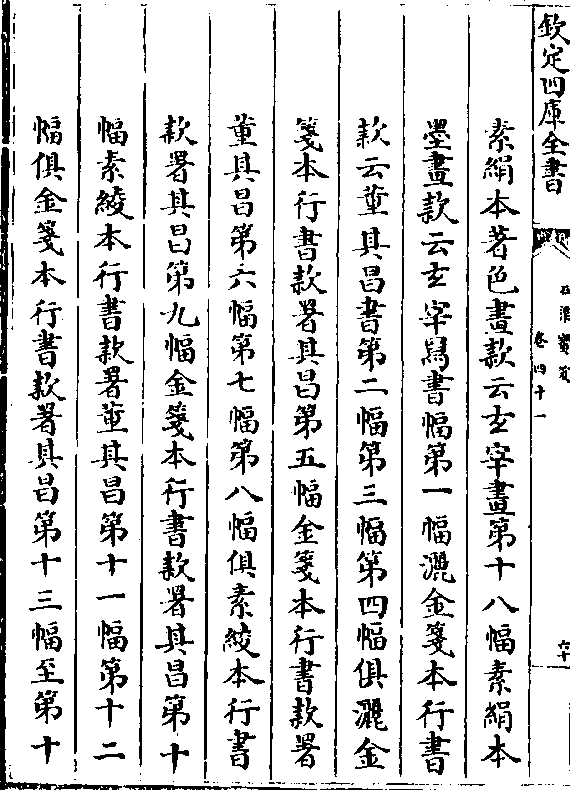 欽定四庫全書
石渠寶笈
卷四十一
六十
素絹本著色畫款云玄宰畫第十八幅素絹本
墨畫款云玄宰冩書幅第一幅灑金箋本行書
款云董其昌書第二幅第三幅第四幅俱灑金
箋本行書款署其昌第五幅金箋本行書款署
董其昌第六幅第七幅第八幅俱素綾本行書
款署其昌第九幅金箋本行書款署其昌第十
幅素綾本行書款署董其昌第十一幅第十二
幅俱金箋本行書款署其昌第十三幅至第十